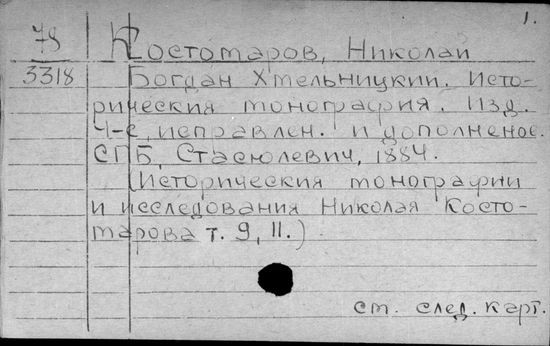 1.
78 Костомаров, Николай
3318 Богдан Хмельницкий. Исто-
рическия монография. Изд.
4-е, исправлен. и дополненое.
СПБ, Стасюлевич, 1884.
(Историческия монографии
и исследования Николая Косто-
марова т. 9, 11.)
см. след. карт.